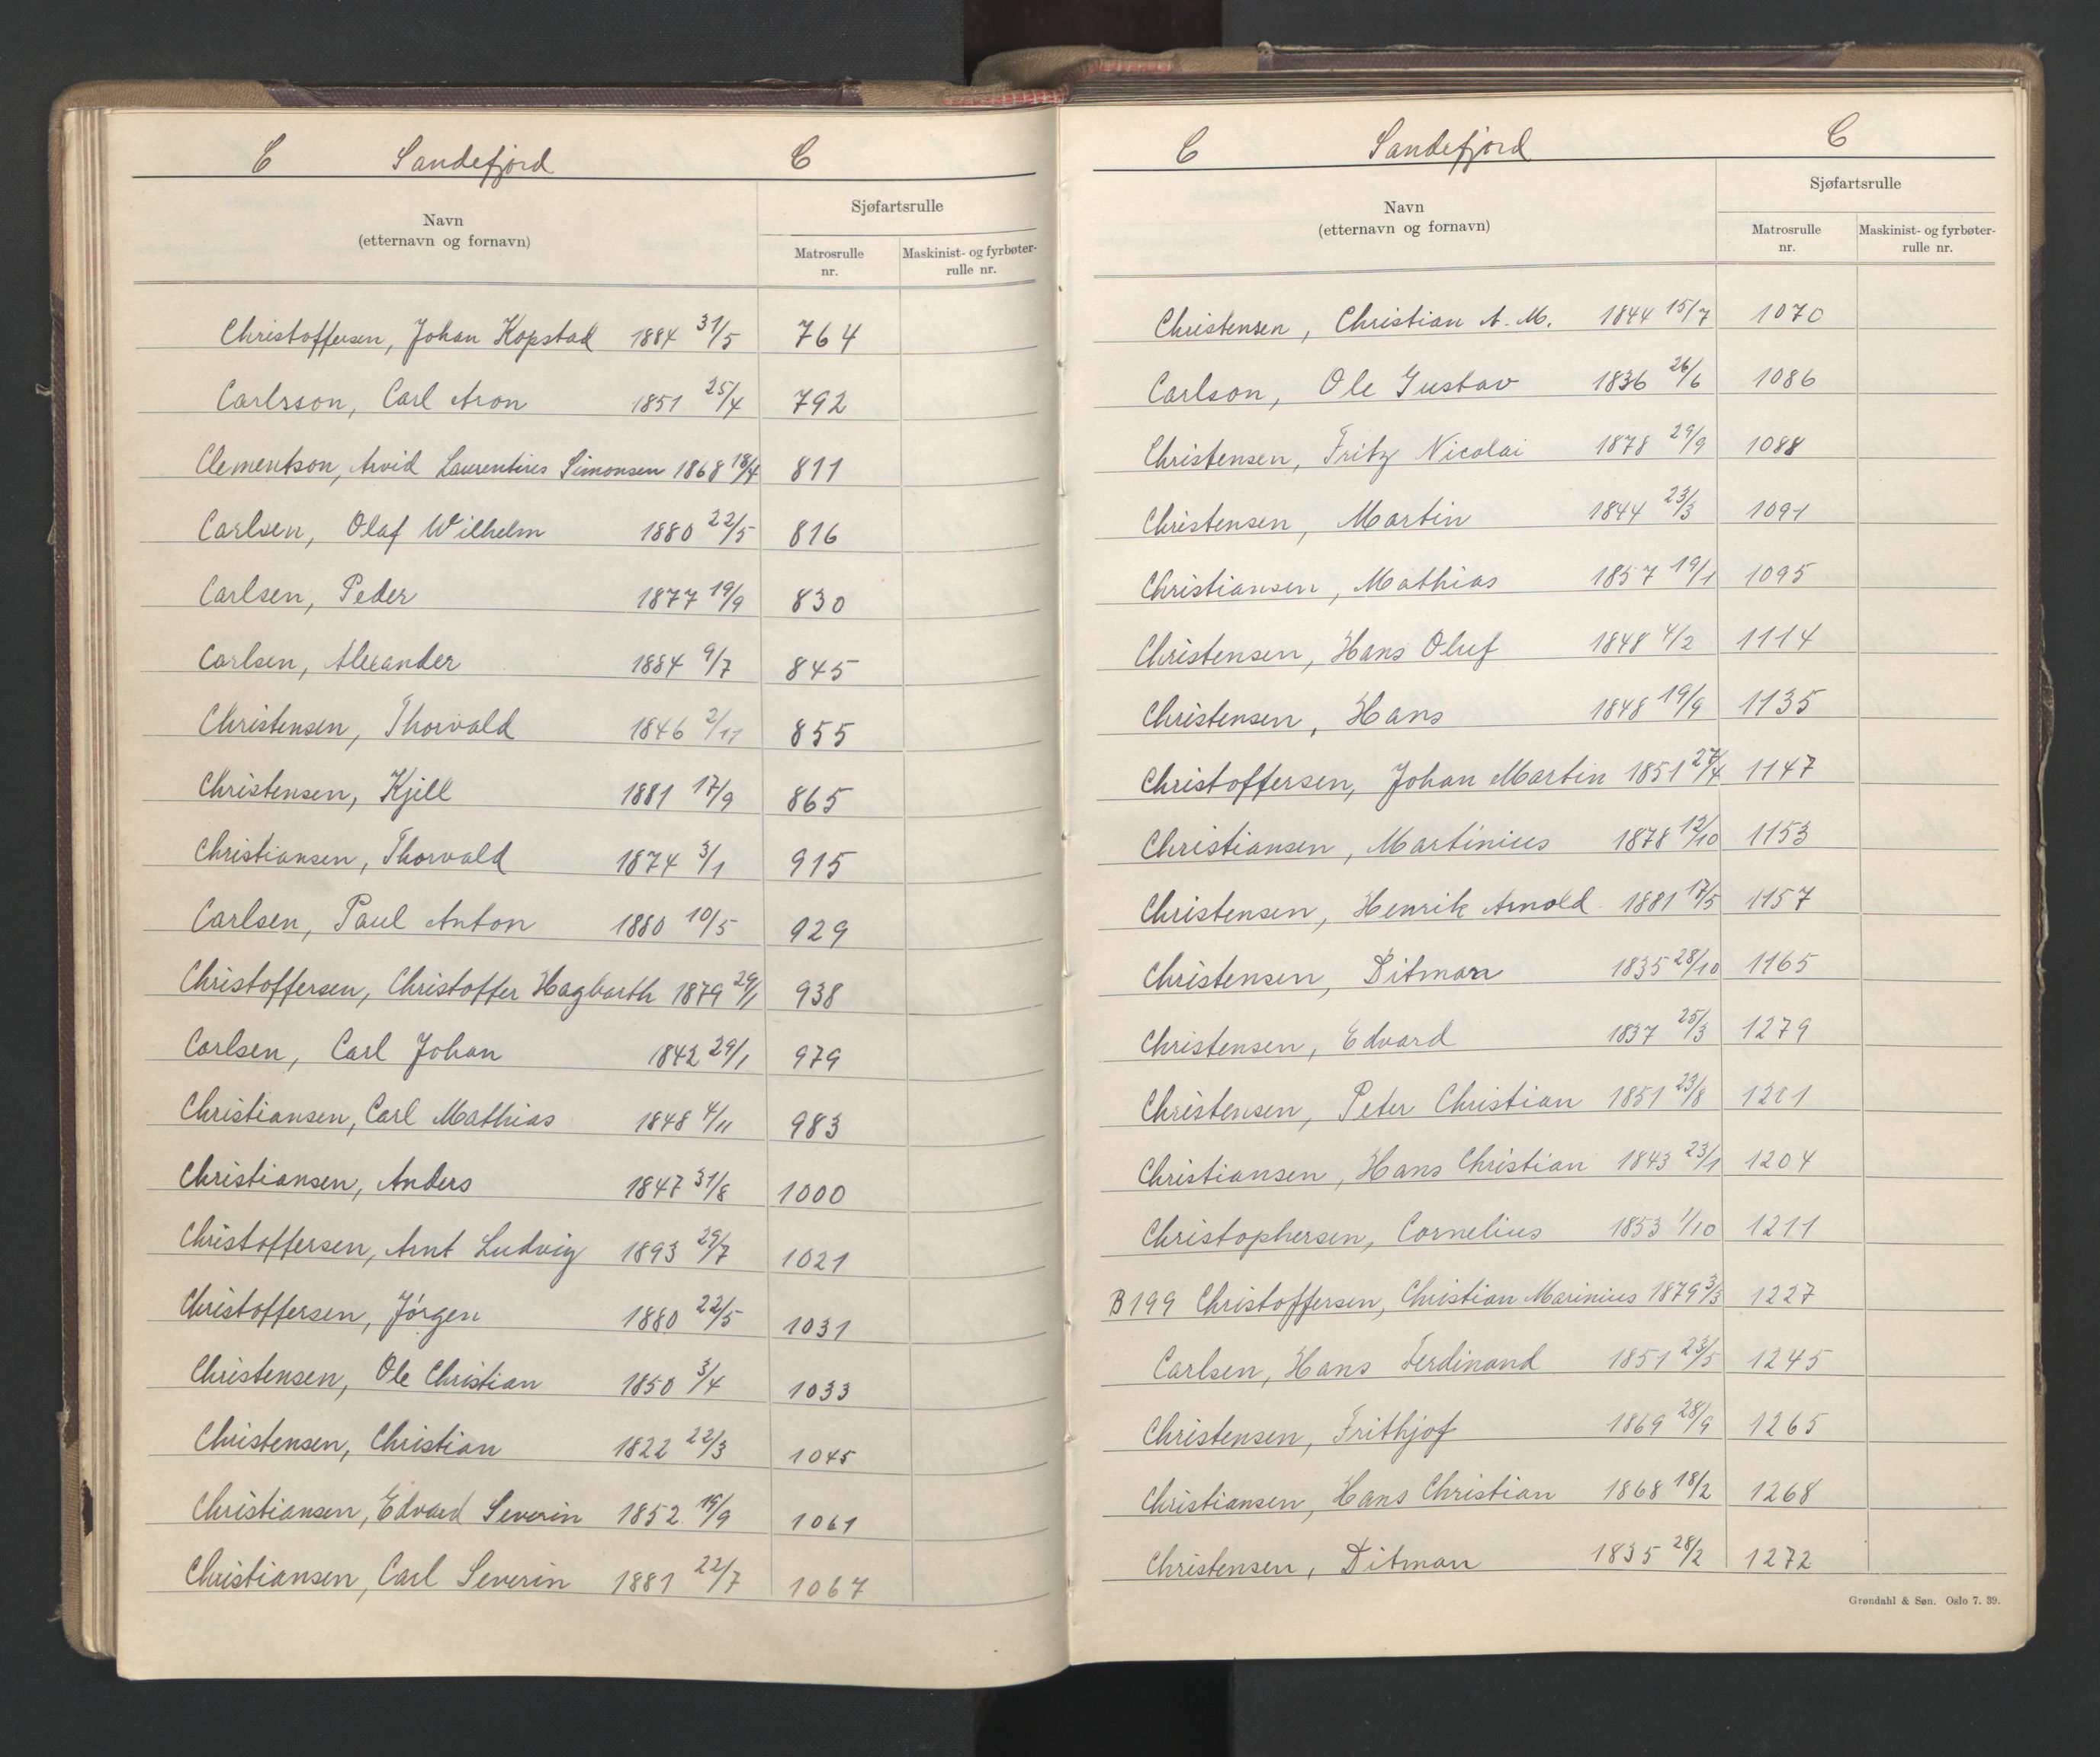 C Sandefjord C
Sjøfartsrulle
Navn
(etternavn og fornavn)
Matrosrulle nr.
Maskinist- og fyrbøter-rulle nr.
Christoffersen, Johan Kopstad 1884 31/5 764
Carlsson, Carl Aron 1851 25/4 792
Clementson, Arvid Laurentius Simonsen 1868 18/4 811
Carlsen, Olaf Wilhelm 1880 22/5 816
Carlsen, Peder 1877 19/9 830
Carlsen, Alexander 1884 9/7 845
Christensen, Thorvald 1846 2/11 855
Christensen, Kjell 1881 17/9 865
Christiansen, Thorvald 1874 3/1 915
Carlsen, Paul Anton 1880 10/5 929
Christoffersen, Christoffer Hagbarth 1879 29/1 938
Carlsen, Carl Johan 1842 29/1 979
Christiansen, Carl Mathias 1848 4/11 983
Christiansen, Anders 1847 31/8 1000
Christoffersen, Arnt Ludvig 1893 29/7 1021
Christoffersen, Jörgen 1880 22/5 1031
Christensen, Ole Christian 1850 3/4 1033
Christensen, Christian 1822 22/3 1045
Christiansen, Edvard Severin 1852 1061
Christiansen, Carl Severin 1881 22/7 1067
C Sandefjord C
Sjøfartsrulle
Navn
(etternavn og fornavn)
Matrosrulle nr.
Maskinist- og fyrbøter-rulle nr.
Christensen, Christian A. M. 1844 15/7 1070
Carlson, Ole Gustav 1836 26/6 1086
Christensen, Fritz Nicolai 1878 29/9 1088
Christensen, Martin 1844 23/3 1091
Christiansen, Mathias 1857 19/1 1095
Christensen, Hans Oluf 1848 4/2 1114
Christensen, Hans 1848 19/9 1135
Christoffersen, Johan Martin 1851 27/4 1147
Christiansen, Martinius 1878 12/10 1153
Christensen, Henrik Arnold 1881 17/5 1157
Christensen, Ditman 1835 28/10 1165
Christensen, Edvard 1837 25/3 1279
Christensen, Peter Christian 1851 23/8
Christiansen, Hans Christian 1843 23/1 1204
Christophersen, Cornelius 1853 1/10 1211
B199 Christoffersen, Christian Marinius 1879 3/3 1227
Carlsen, Hans Ferdinand 1851 23/5 1245
Christensen, Frithjof 1869 28/9 1265
Christiansen, Hans Christian 1868 18/2 1268
Christensen, Ditman 1835 28/2 1272
Grøndahl & Søn. Oslo 7. 39.